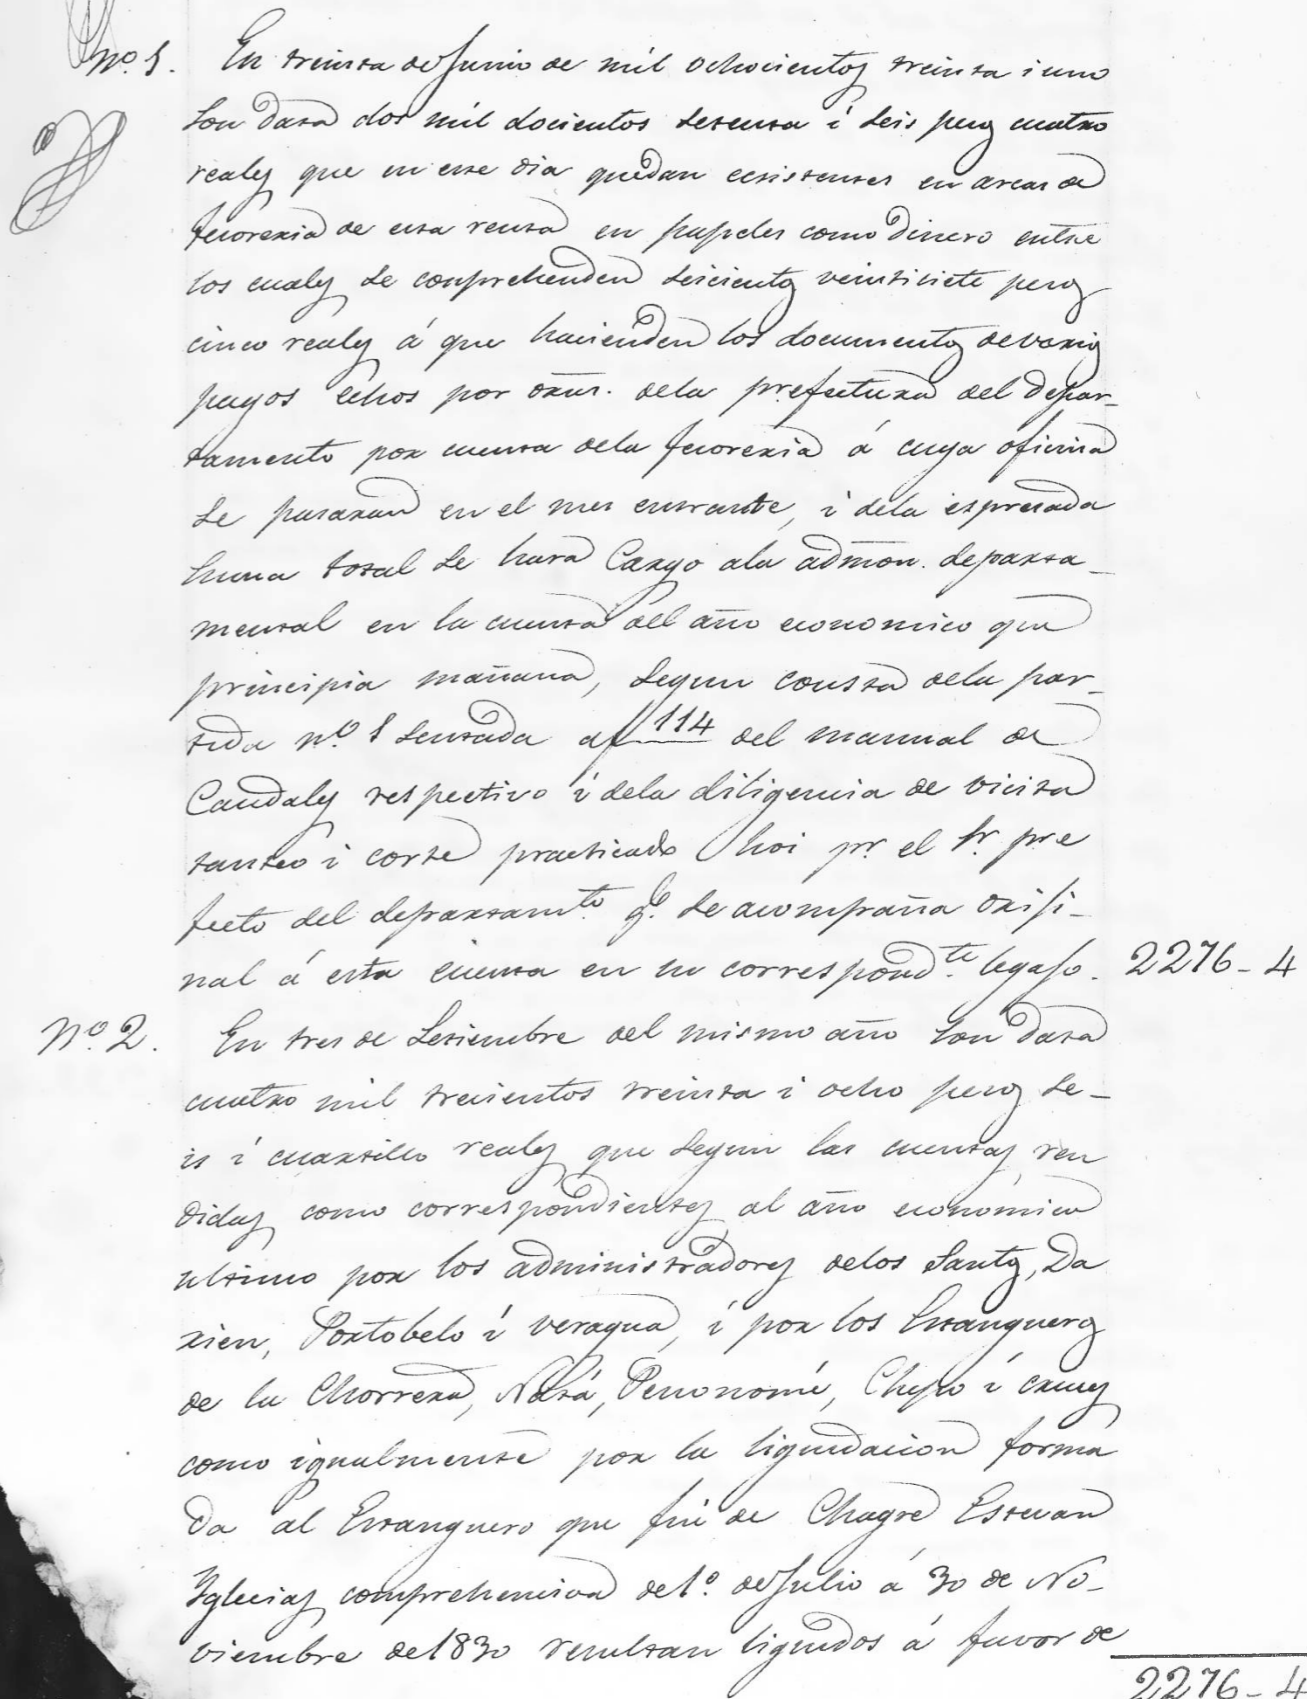 Nº. 1. En treinta de Junio de mil ochocientos treinta i uno
son data dos mil docientos setenta i seis pesos cuatro
reales que en este dia quedan ecsistentes en arcas de
tesoreria de esta renta en papeles como dinero entre
los cuales se comprehenden seicientos veintisiete pesos
cinco reales á que hacienden los documentos de varios
pagos echos por orns. dela prefectura del depar-
tamento por cuenta dela tesoreria á cuya oficina
se pasaran en el mes entrante, i dela espresada
suma total se hara Cargo ala admon. departa-
mental en la cuenta del año economico que
principia mañana, segun consta dela par-
tida nº. 1 sentada af 114 del manual de
Caudales respectivo i dela diligencia de vicita
tanteo i corte practicado hoi pr. el Sr. pre
fecto del departamto. qe. se acompaña oriji-
nal á esta cuenta en su correspondte. legajo. 2276-4
Nº. 2. En tres de Setiembre del mismo año son data
cuatro mil trecientos treinta i ocho pesos se-
is i cuartillo reales que segun las cuentas ren
didas como correspondientes al año economico
ultimo por los administradores delos Santos, Da
rien, Portobelo i veragua, i por los Estanqueros
de la Chorrera, Natá, Penonomé, Chepo i cruces
como igualmente por la liquidacion forma
da al Estanquero que fué de Chagre Estevan
Yglecias comprehenciva de 1º. de Julio á 30 de No-
viembre de 1830 resultan liquidos á favor de
2276-4